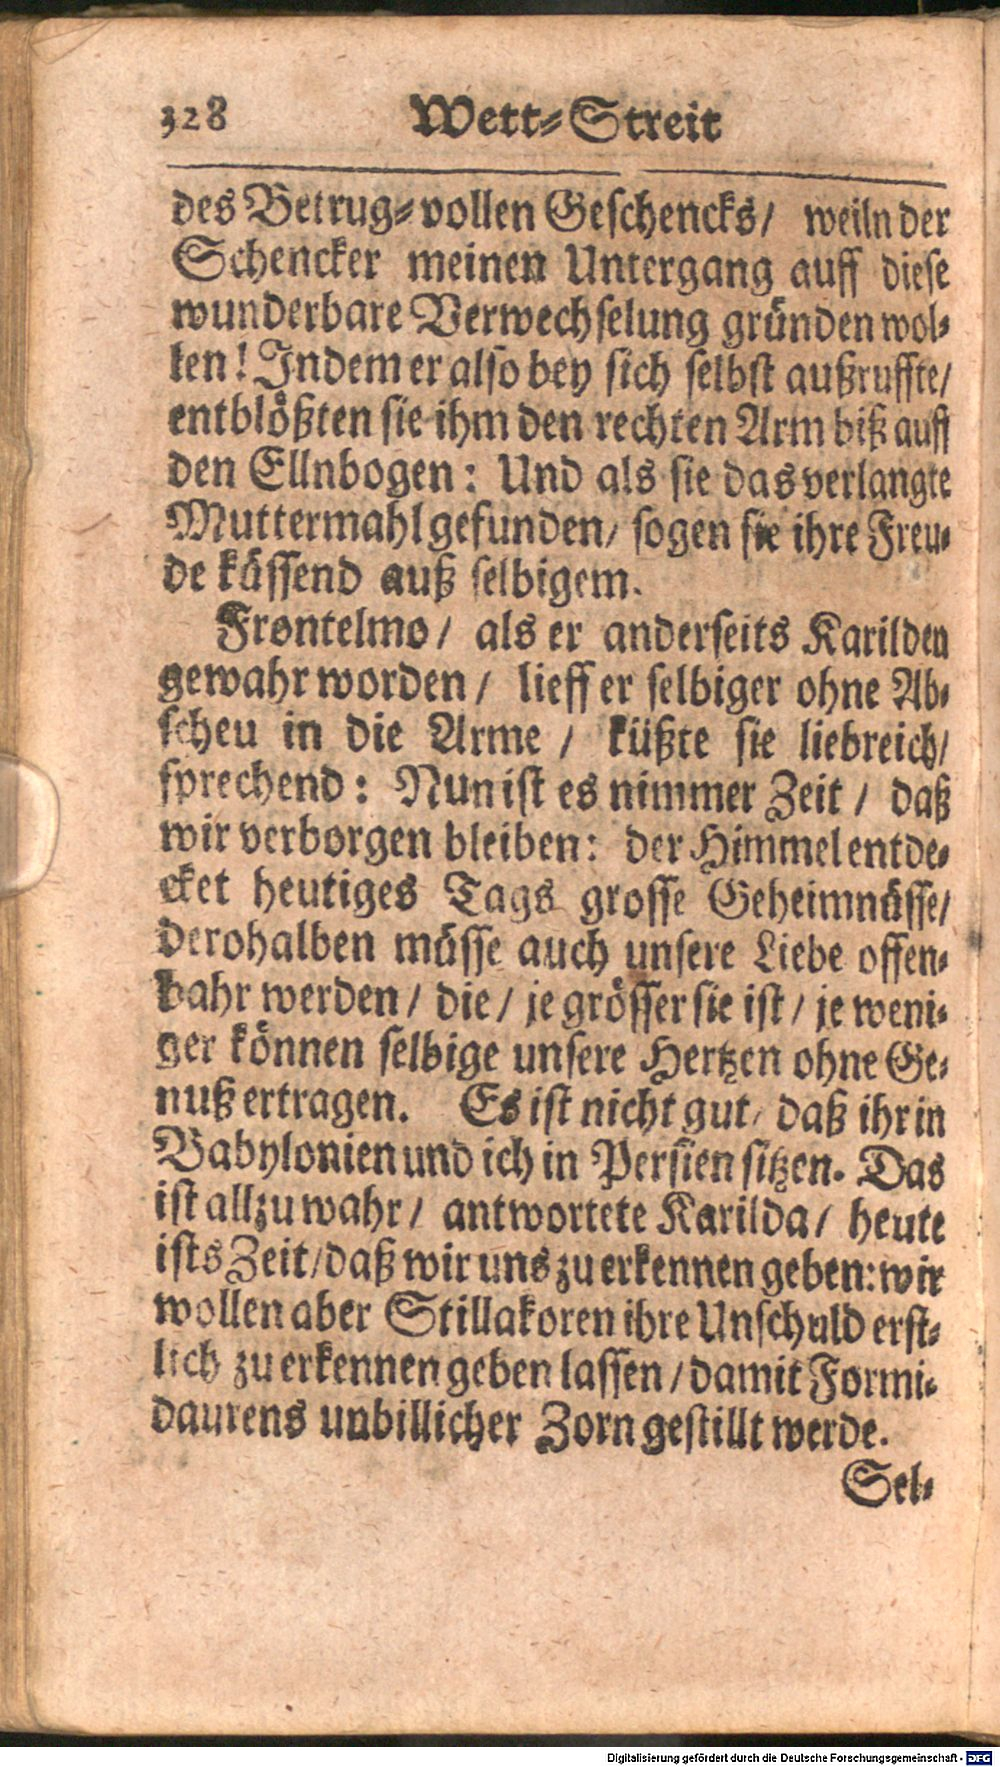 328 Wett-Streit
des Betrug-vollen Geschencks/ weiln der
Schencker meinen Untergang auff diese
wunderbare Verwechselung gründen wol-
len! Indem er also bey sich selbst außruffte/
entblößten sie ihm den rechten Arm biß auff
den Ellnbogen: Und als sie das verlangte
Muttermahl gefunden/ sogen sie ihre Freu-
de küssend auß selbigem.
Frontelmo/ als er anderseits Karilden
gewahr worden/ lieff er selbiger ohne Ab-
scheu in die Arme/ küßte sie liebreich/
sprechend: Nun ist es nimmer Zeit/ daß
wir verborgen bleiben: der Himmel entde-
cket heutiges Tags grosse Geheimnüsse/
derohalben müsse auch unsere Liebe offen-
bahr werden/ die/ je grösser sie ist/ je weni-
ger können selbige unsere Hertzen ohne Ge-
nuß ertragen. Es ist nicht gut/ daß ihr in
Babylonien und ich in Persien sitzen. Das
ist allzu wahr/ antwortete Karilda/ heute
ists Zeit/ daß wir uns zu erkennen geben: wir
wollen aber Stillakoren ihre Unschuld erst-
lich zu erkennen geben lassen/ damit Formi-
daurens unbillicher Zorn gestillt werde.
Sel-
Digitalisierung gefördert durch die Deutsche Forschungsgemeinschaft - DFG